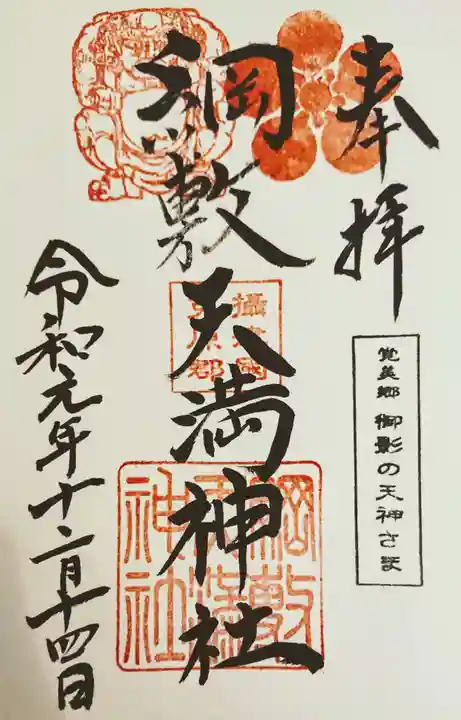 奉拝
覚美郷 御影の天神さま
綱敷天満神社
攝津國
菟原郡
綱敷
天満
神社
令和元年十二月十四日